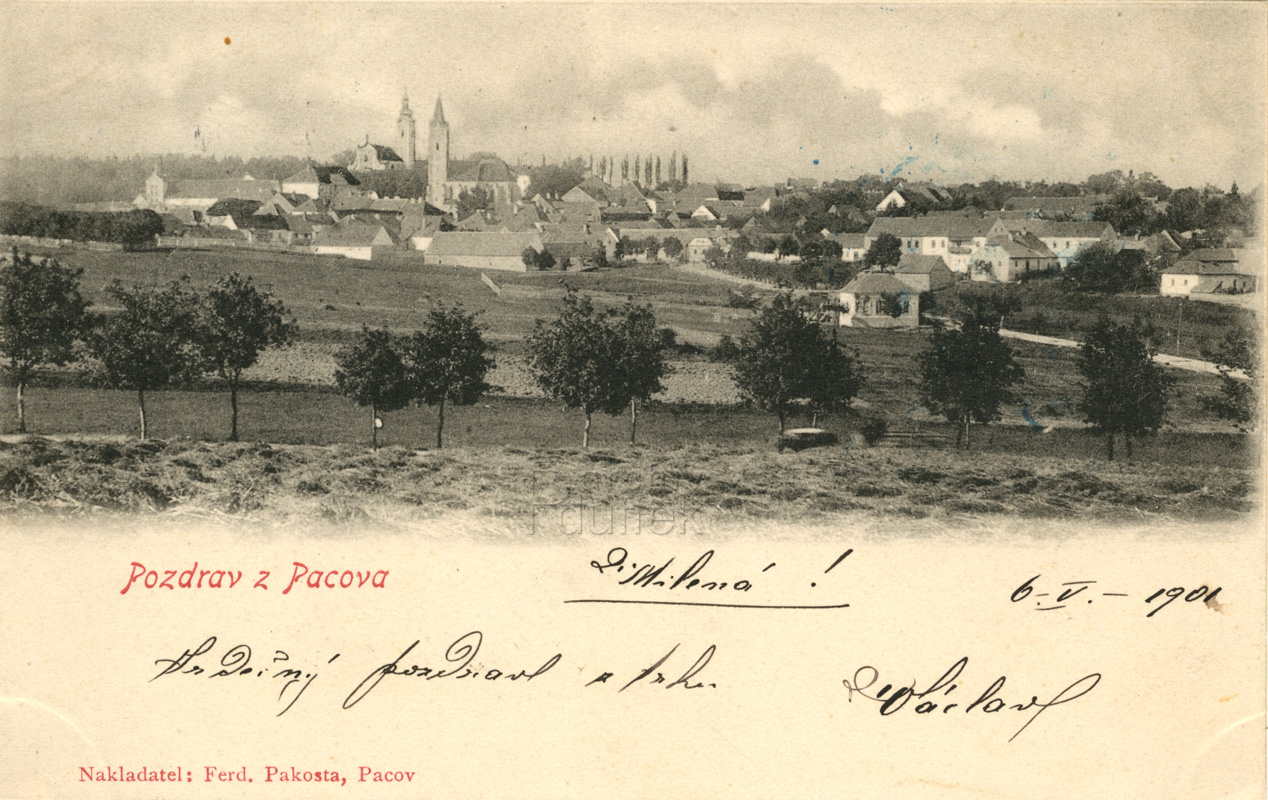 Pozdrav z Pacova
Milená!
6-V.-1901
Srdečný pozdrav z trhu
Václav
Nakladatel: Ferd. Pakosta, Pacov